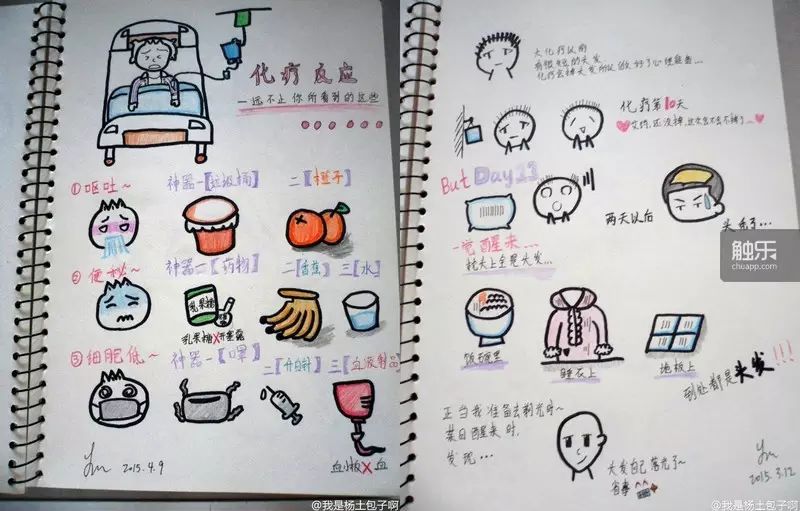 化疗反应
一远不止你所看到的这些
①呕吐~
神器一【垃圾桶】
二【橙子】
②便秘~
神器一【药物】
二【香蕉】
三【水】
乳果糖
乳果糖X开塞露
③细胞低~
神器一【口罩】
二【升白针】
三【血液制品】
血小板X血
2015.4.9
@我是杨土包子啊
大化疗以前
有很短的头发
化疗会掉头发所以做好了心理准备...
化疗第10天
还没掉,这次会不会不掉了~
But Day13
两天以后
头秃了...
一觉醒来...
枕头上全是头发...
触乐
chuapp.com
饭碗里
睡衣上
地板上
到处都是头发!!!
正当我准备去剃光时~
某日醒来时,
发现...
头发自己落光了~
省事
2015.3.12
@我是杨土包子啊